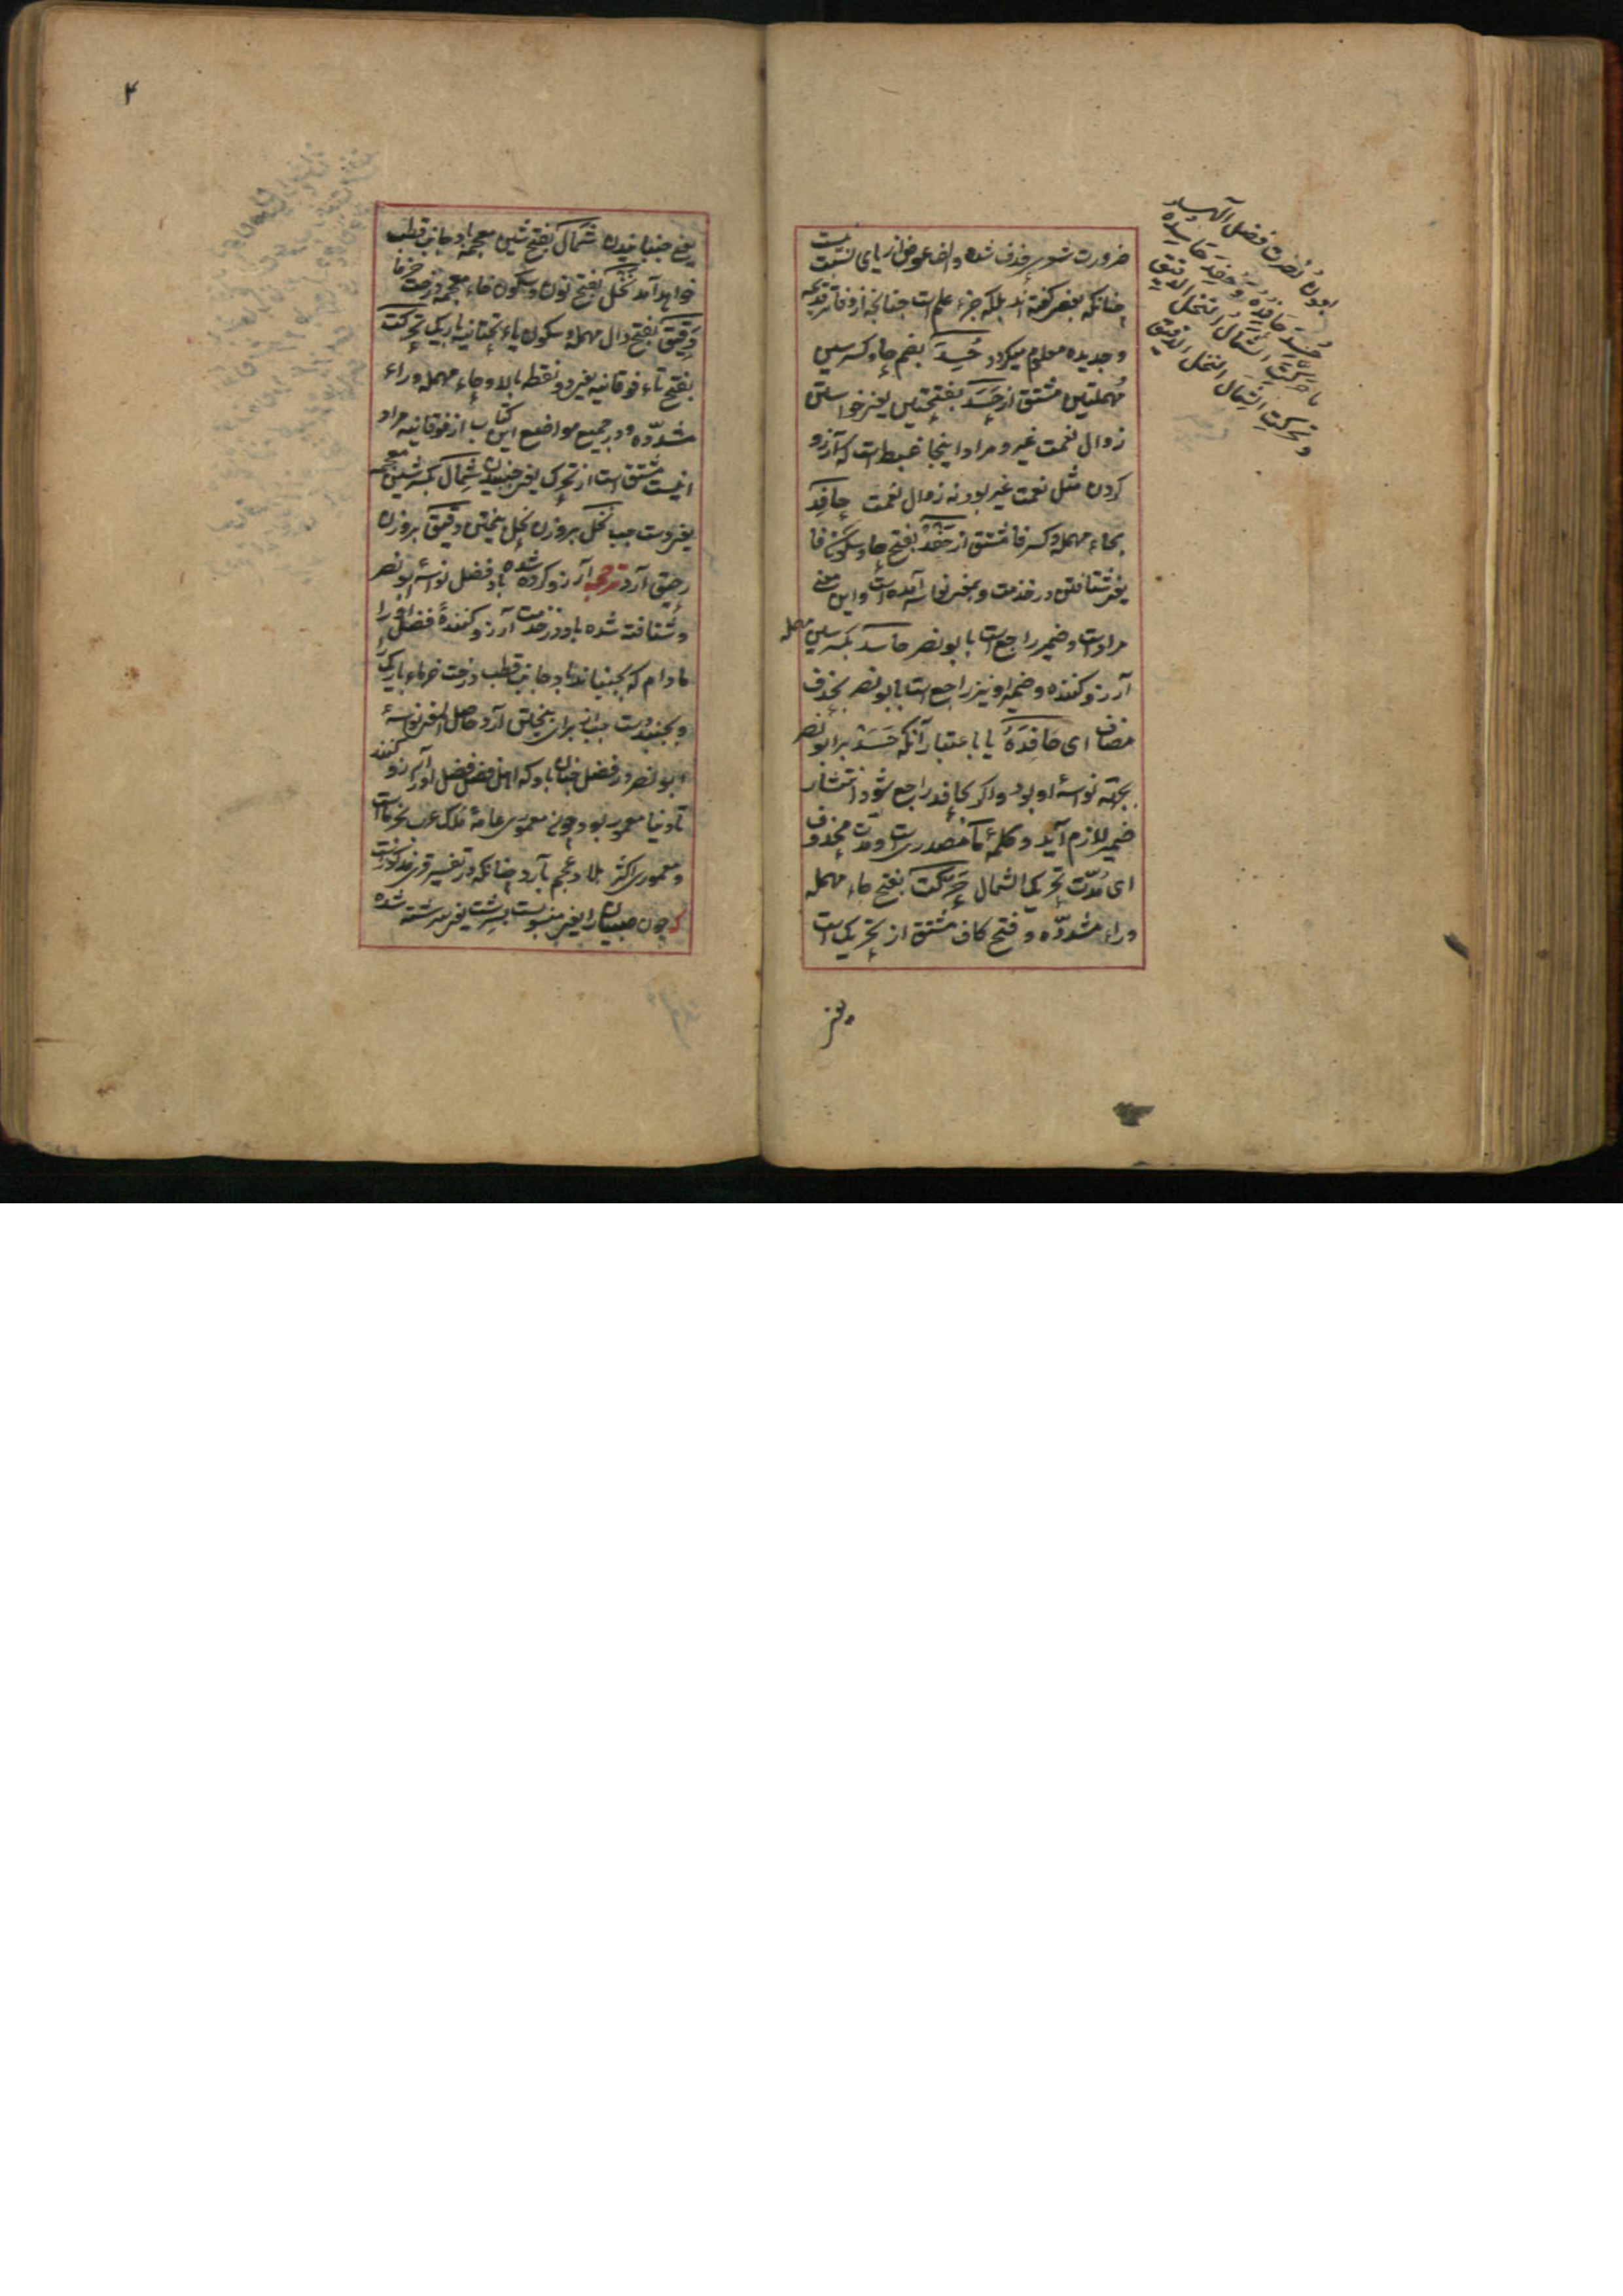 ضرورت شعری حذف شده و الف عوض از یای نسبت نیست
چنانکه بعضی گفته اند بلکه جزء علم است چنانچه از وفا ترقدیمه
و جدیده معلوم میگردد حُسِدَ بضم حا و کسر سین
مهملتین مشتق از حَسَدَ بفتحتین یعنی خواستن
زوال نعمت غیر و مراد اینجا غبطه است که آرزو
کردن مثل نعمت غیر بود نه زوال نعمت حافِد
بحاء مهمله و کسر فا مشتق از حَفْدْ بفتح حا و سکون فا
یعنی شتافتن در خدمت و بمعنی نواسه آمده است و این معنی
مراد است و ضمیر راجع است با بونصر حاسد بکسر سین مهمله
آرزو کننده و ضمیر او نیز راجع است بابونصر بحذف
مضاف ای حَافِدَهُ یا باعتبار آنکه حَسَدْ بر ابونصر
بجهة نواسهٔ او بود و اگر بحافد راجع شود انتشار
ضمیر لازم آید و کلمهٔ ما مصدری است و مدت محذوف
ای مُدّت تحریک الشمال حَرَّکَتْ بفتح حاء مهمله
و راء مشدّده و فتح کاف مشتق از تحریک است
یعنی
ابوده نُصرت فضل آلهی
حُسِدَ حَافِدُهُ وحفد حَاسِدُه
ما حَرَّکَتِ الشَّمالُ النخلَ الدقیق
و تحرکت الشِمال النخل الدقیق
۴
یعنی جنبانیدن شَمال بفتح شین معجمه باد جانب قطب
خواهد آمد نَخْل بفتح نون و سکون خاء معجمه درخت خرما
دَقِیق بفتح دال مهمله و سکون یاء تحتانیه باریک تحرکت
بفتح تاء فوقانیه یعنی دو نقطه بالا و حاء مهمله و راء
مشدّده و در جمیع مواضع این کتاب از فوقانیه مراد
اینست مشتق است از تحرک یعنی جنبیدن شِمال بکسر شین معجمه
یعنی دست چپ نَخْل بروزن نخل بیختن دقیق بروزن
رحیق آرد ترجمه آرزو کرده شده باد فضل نواسهٔ ابونصر
و شتافته شده باد در خدمت آرزو کنندهٔ فضل او را
مادام که بجنباند باد جانب قطب درخت خرماء باریک را
و بجنبد دست چپ از برای بیختن آرد حاصل المعنی نواسهٔ
ابونصر در فضل چنان باد که اهل فضل فضل او را آرزو کنند
تا دنیا معمور بود چونی معموری عامهٔ ملک عرب بخرما است
و معموری اکثر بلاد عجم بآرد چنانکه در تفسیر
که چون صبیان را یعنی منسوبست بسرشت یعنی سرشته شده